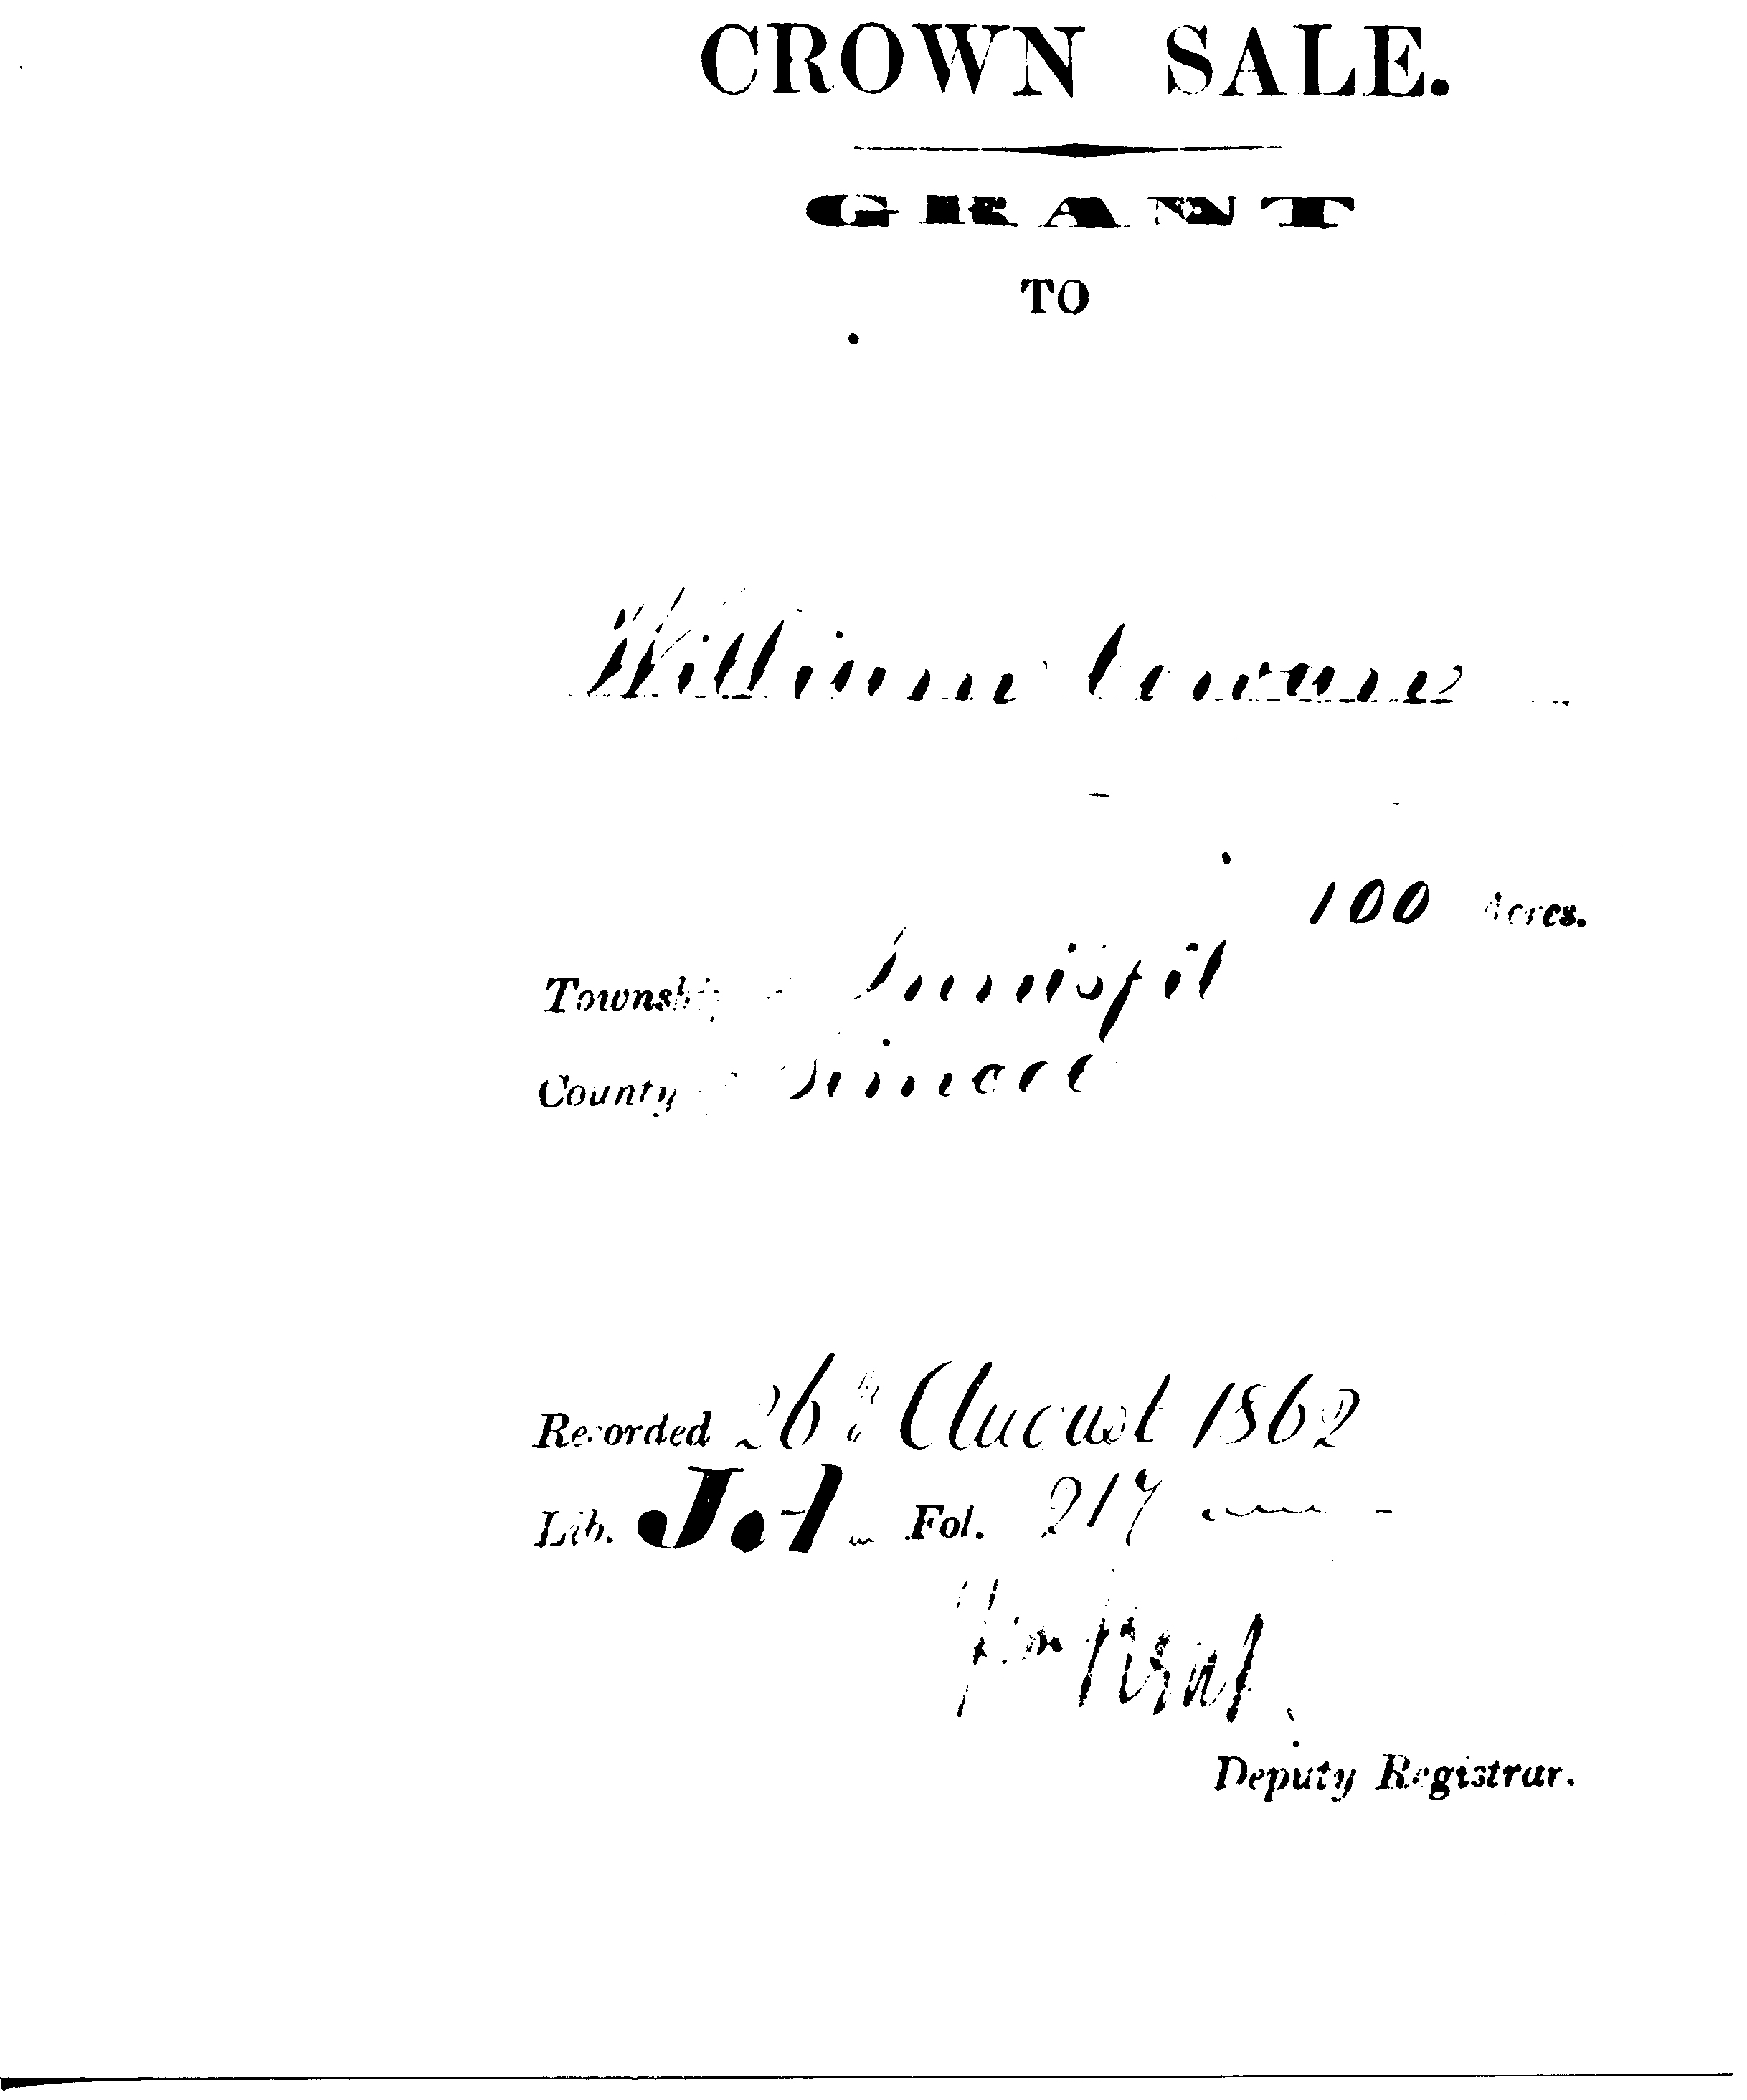 CROWN SALE.
GRANT
TO
William Cowan
100 Acres.
Township of Innisfil
County of Simcoe
Recorded 26th August 1862
Lib. Fol. 217
Wm Kent
Deputy Registrar.